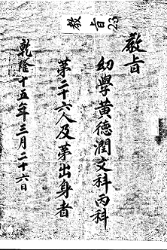 敎旨 23
敎旨
幼學黃德潤文科丙科
第二十六人及第出身者
乾隆十五年三月二十六日